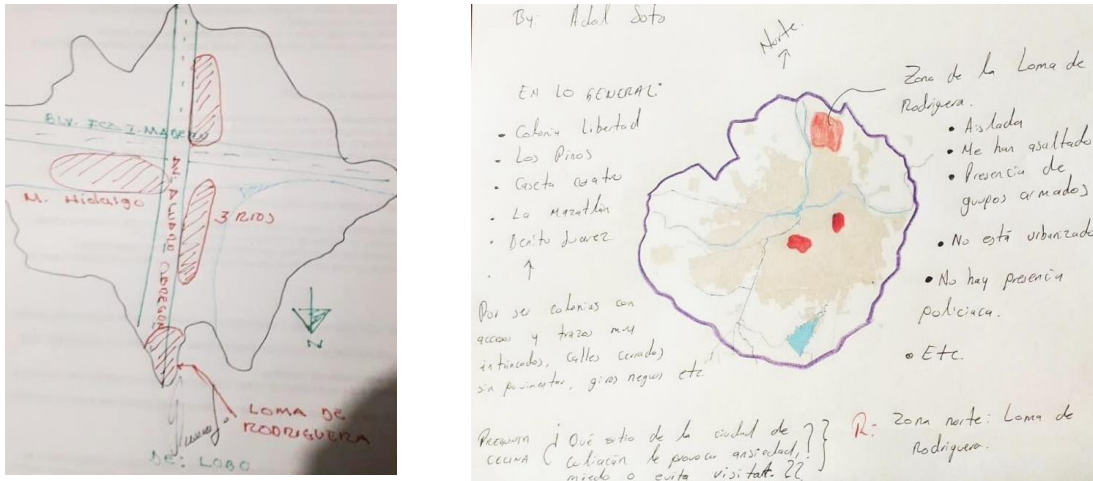 BLV. FCO. I. MADERO
M. Hidalgo
AV. ALVARO OBREGON
3 RIOS
N
LOMA DE
RODRIGUERA
DE: LOBO
By: Adal Soto
Norte
EN LO GENERAL:
• Colonia Libertad
• Los Pinos
• Caseta cuatro
• La Mazatlán
• Benito Juarez
Por ser colonias con
acceso y trazos muy
intrincados, calles cerradas
sin pavimentar, giros negros etc.
Zona de la Loma de
Rodriguera.
• Aislada
• Me han asaltado
• Presencia de
grupos armados
• No está urbanizado
• No hay presencia
policiaca.
• Etc.
PREGUNTA
CELINA
¿Qué sitio de la ciudad de
culiacán le provoca ansiedad,
miedo o evita visitar. ??
R: Zona norte: Loma de
Rodriguera.